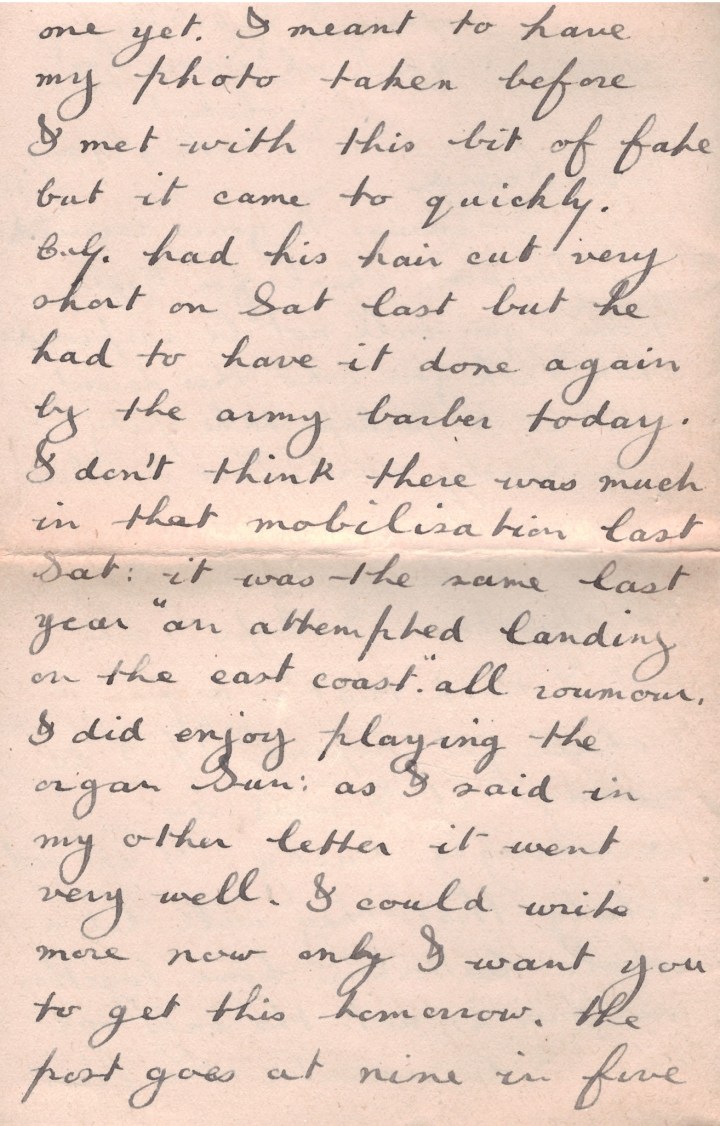 one yet. I meant to have
my photo taken before
I met with this bit of fate
but it came to quickly.
C.G. had his hair cut very
short on Sat last but he
had to have it done again
by the army barber today.
I don't think there was much
in that mobilisation last
Sat: it was the same last
year "an attempted landing
on the east coast." all roumour.
I did enjoy playing the
organ Sun: as I said in
my other letter it went
very well. I could write
more now only I want you
to get this tomorrow. the
post goes at nine in five